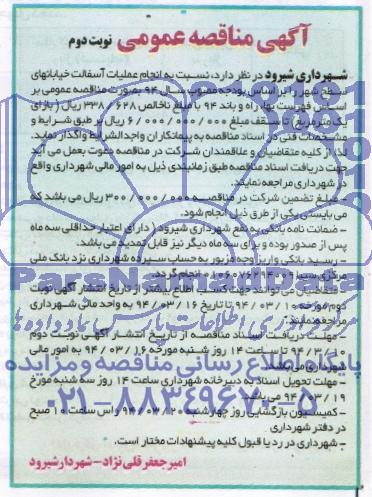 آگهی مناقصه عمومی نوبت دوم
شهرداری شیرود در نظر دارد، نسبت به انجام عملیات آسفالت خیابانهای
سطح شهر را بر اساس بودجه مصوب سال ۹۴ بصورت مناقصه عمومی بر
اساس فهرست بهاء راه و باند ۹۴ با مبلغ ناخالص ۳۳۸/۶۴۸ ریال (بازای
یک متر مربع) تا سقف مبلغ ۶/۰۰۰/۰۰۰/۰۰۰ ریال بر طبق شرایط و
مشخصات فنی در اسناد مناقصه به پیمانکاران واجدالشرایط واگذار نماید.
لذا از کلیه متقاضیان و علاقمندان شرکت در مناقصه دعوت بعمل می آید
جهت دریافت اسناد مناقصه طبق زمانبندی ذیل به امور مالی شهرداری واقع
در شهرداری مراجعه نمایند.
- مبلغ تضمین شرکت در مناقصه ۳۰۰/۰۰۰/۰۰۰ ریال می باشد که
می بایستی یکی از طرق ذیل انجام شود.
- ضمانت نامه بانکی به نفع شهرداری شیرود (دارای اعتبار حداقلی سه ماه
پس از صدور بوده و برای سه ماه دیگر نیز قابل تمدید می باشد.
- رسید بانکی واریز وجه مزبور به حساب سپرده شهرداری نزد بانک ملی
مرکزی سیبا ۰۱۰۶۰۷۶۲۹۴۰۰۹ انجام گردد.
متقاضیان می توانند جهت کسب اطلاع بیشتر از تاریخ انتشار آگهی نوبت
دوم مورخه ۹۴/۰۳/۱۰ تا تاریخ ۹۴/۰۳/۱۶ به واحد مالی شهرداری
مراجعه نمایند.
- مهلت دریافت اسناد مناقصه از تاریخ انتشار آگهی نوبت دوم
۹۴/۳/۱۰ تا ساعت ۱۴ روز شنبه مورخه ۹۴/۰۳/۱۶ به امور مالی
شهرداری می باشد.
- مهلت تحویل اسناد به دبیرخانه شهرداری ساعت ۱۴ روز سه شنبه مورخ
۹۴/۰۳/۱۹ می باشد.
- کمیسیون بازگشایی روز چهارشنبه ۹۴/۰۳/۲۰ راس ساعت ۱۰ صبح
در دفتر شهرداری
- شهرداری در رد یا قبول کلیه پیشنهادات مختار است.
امیر جعفر قلی نژاد - شهردار شیرود
ParsNamadData
مرکز فرآوری اطلاعات پارس نماد داده ها
پایگاه اطلاع رسانی مناقصه و مزایده
۰۲۱-۸۸۳۴۹۶۷۰-۵